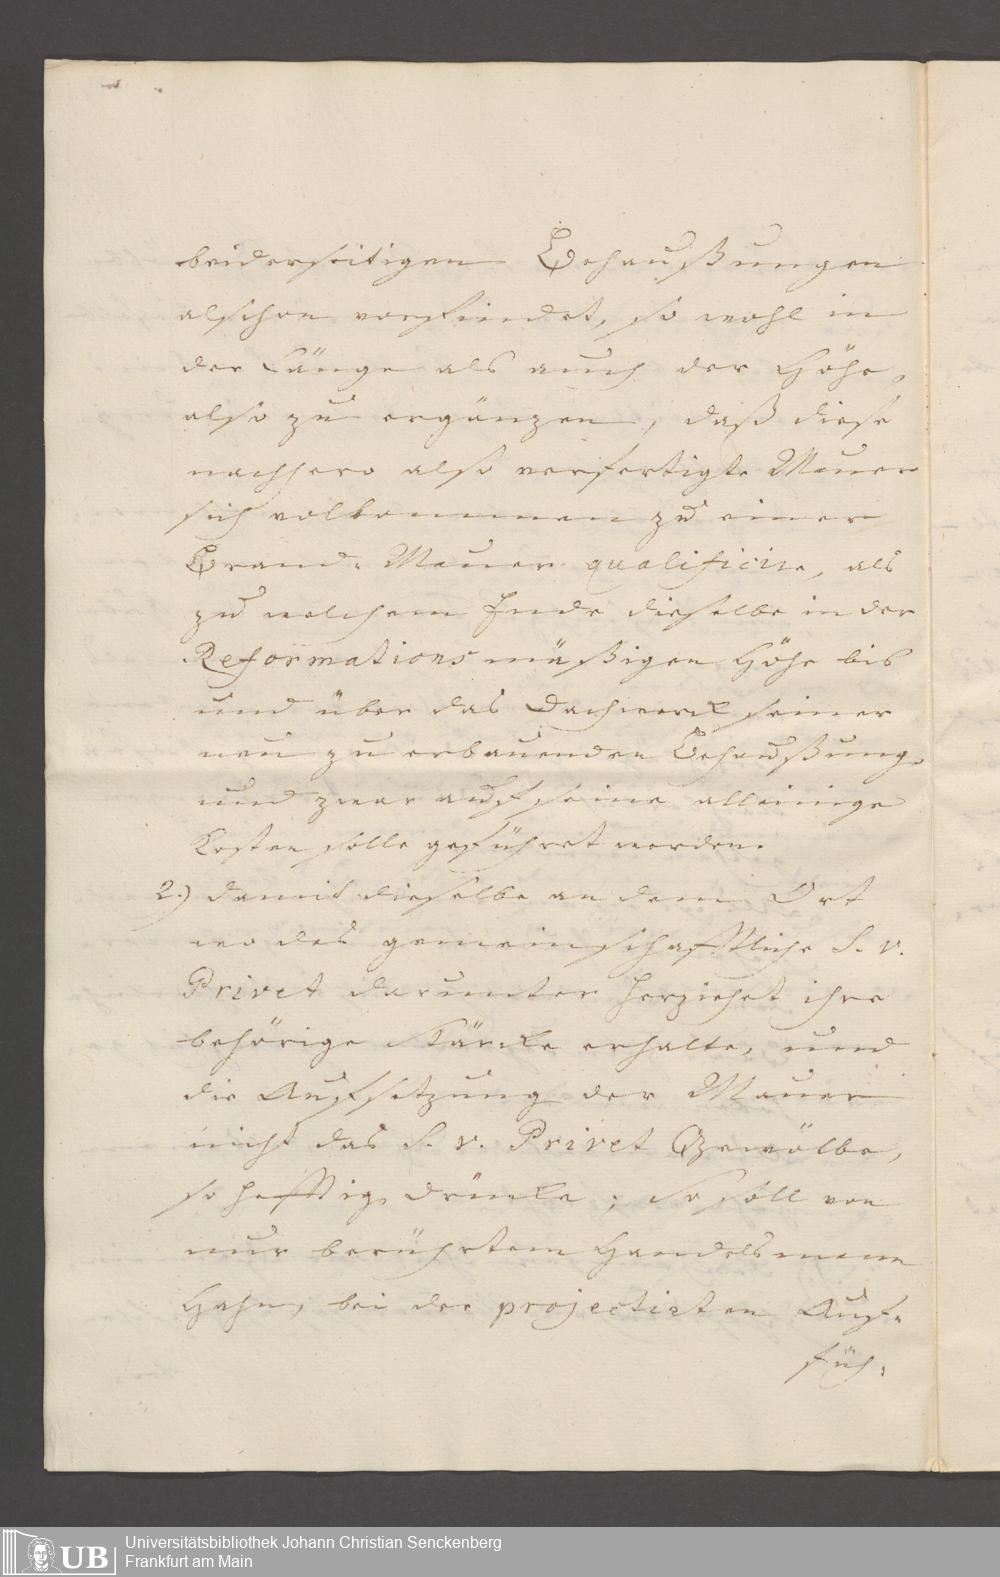 beiderseitigen Behaußungen
alschon vorfindet, so wohl in
der Länge als auch der Höhe,
also zu ergänzen, daß diese
nachhero also verfertigte Mauer
sich volkommen zu einer
Brand-Mauer qualificire, als
zu welchem Ende dieselbe in der
Reformations mäßigen Höhe bis
und über das Dachwerck seiner
neu zu erbauenden Behaußung,
und zwar auf seine alleinige
Kosten solle geführet werden.
2.) damit dieselbe an dem Ort
wo das gemeinschafftliche S. v.
Privet darunter herziehet ihre
behörige Stärcke erhalte, und
die Aufsetzung der Mauer
nicht das S. v. Privet Gewölbe,
so hefftig drücke; So soll von
nur berührtem Handelsmann
Hahn, bei der projectirten Auf-
füh-
Universitätsbibliothek Johann Christian Senckenberg
Frankfurt am Main
UB